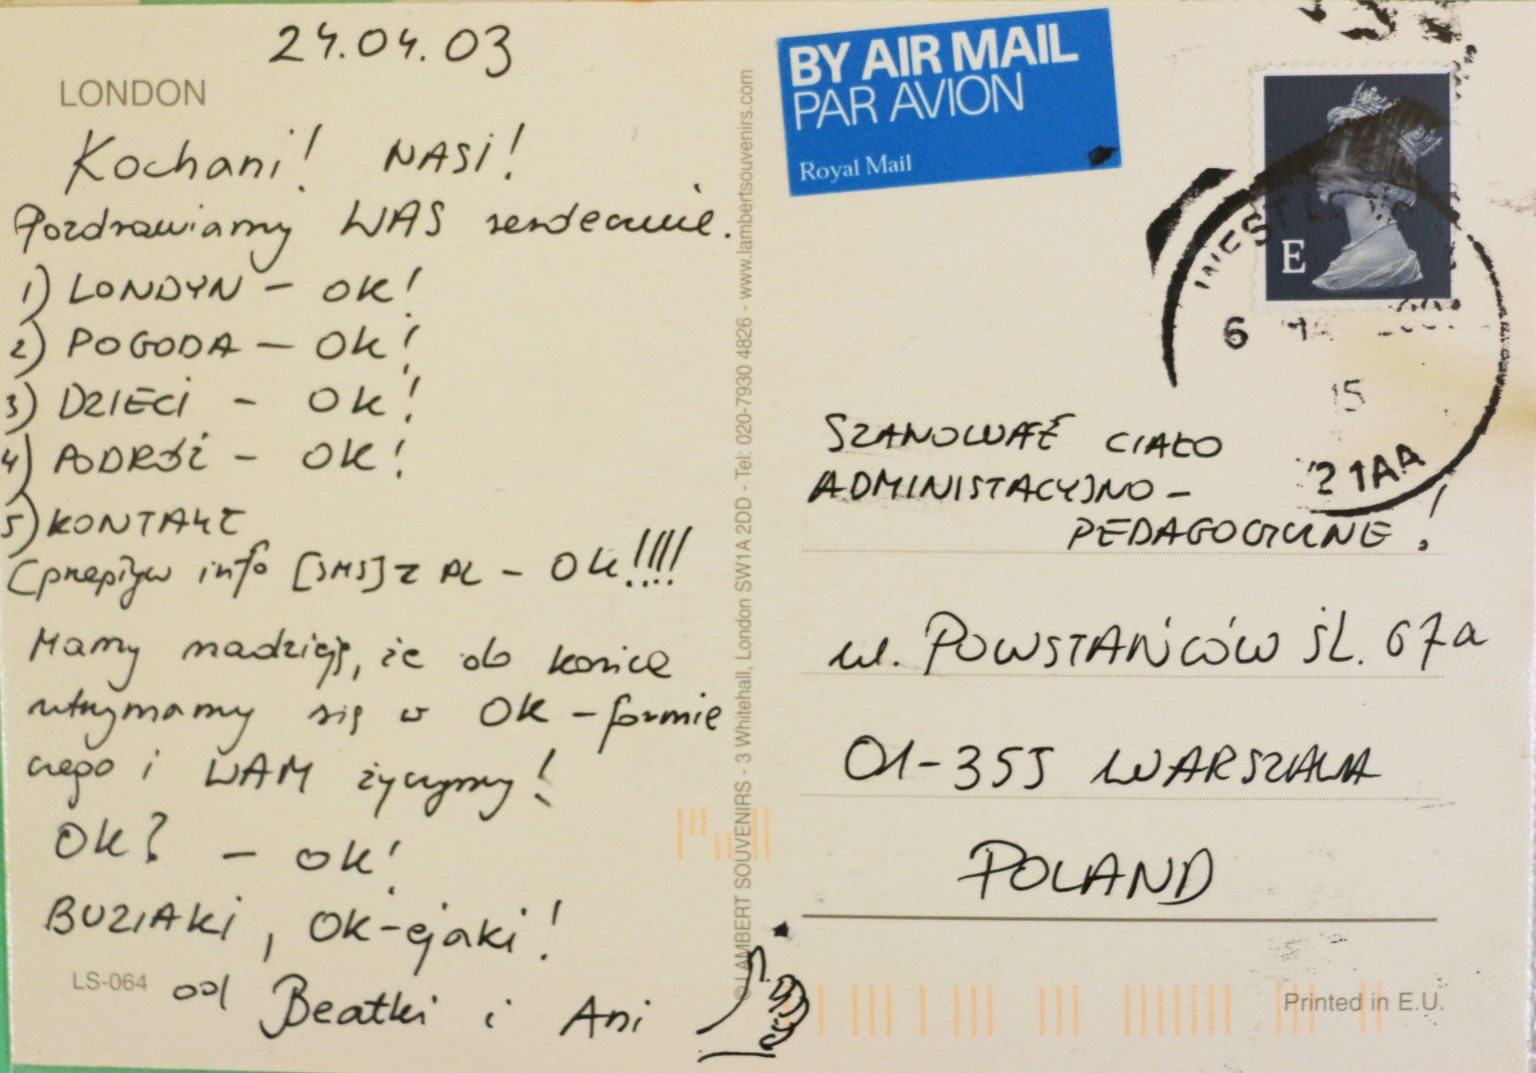 24.04.03
LONDON
Kochani! NASI!
Pozdrawiamy WAS serdecznie.
1) LONDYN - OK!
2) POGODA - OK!
3) DZIECI - OK!
4) PODRÓŻ - OK!
5) KONTAKT
(przepływ info [SMS] z PL - OK!!!!
Mamy nadzieję, że do końca
utrzymamy się w OK - formie
czego i WAM życzymy!
OK? - OK!
BUZIAKI, OK-ejaki!
LS-064
od Beatki i Ani
© LAMBERT SOUVENIRS - 3 Whitehall, London SW1A 2DD - Tel: 020-7930 4826 - www.lambertsouvenirs.com
BY AIR MAIL
PAR AVION
Royal Mail
E
6
15
21AA
SZANOWNE CIAŁO
ADMINISTACYJNO-
PEDAGOGICZNE!
ul. POWSTAŃCÓW ŚL. 67a
01-355 WARSZAWA
POLAND
Printed in E.U.